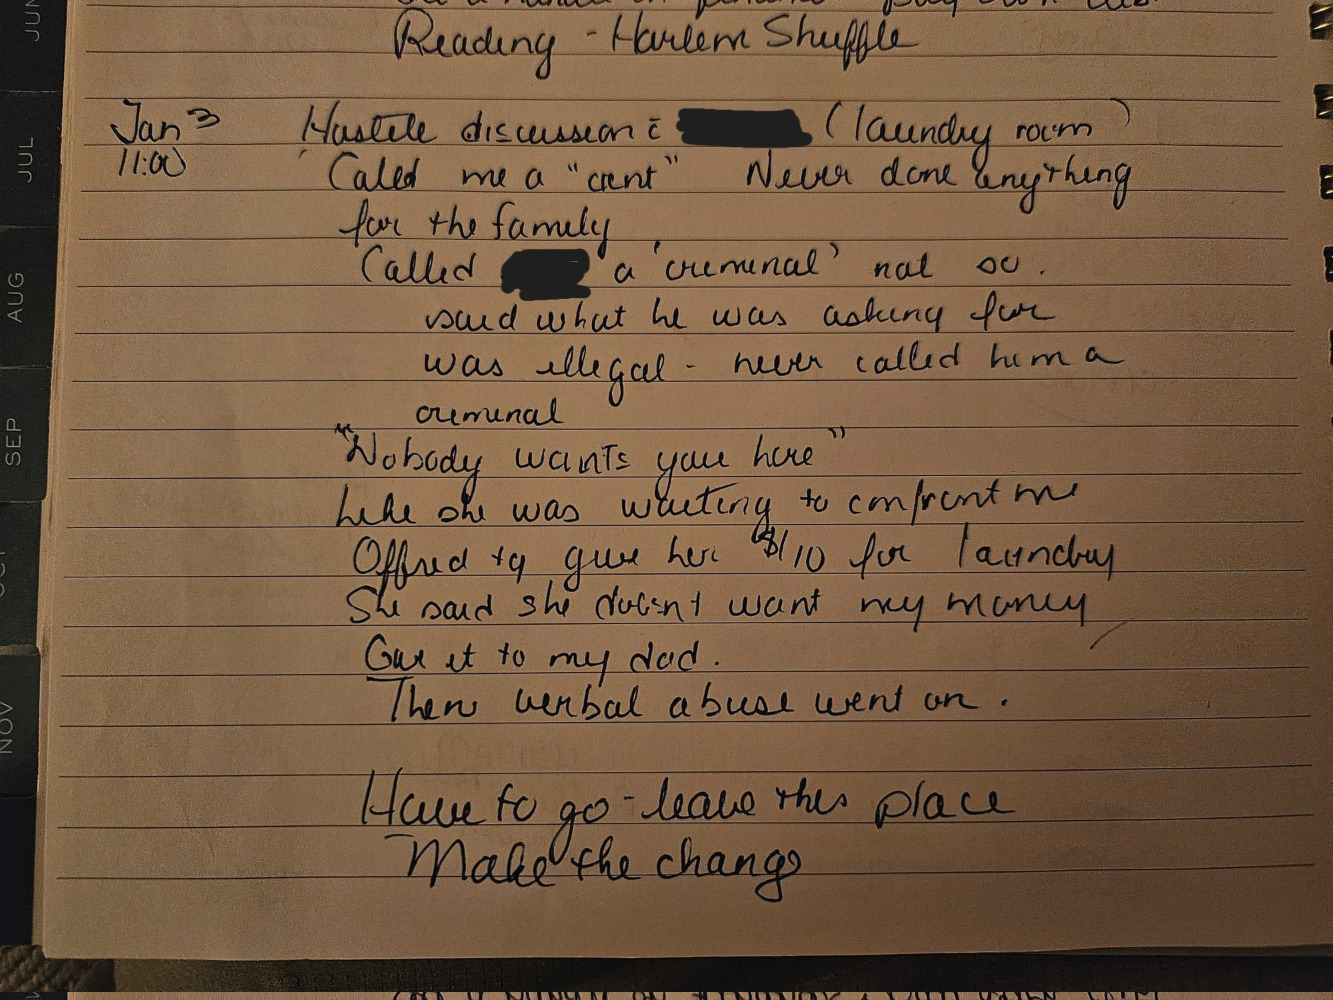 Reading - Harlem Shuffle
Jan 3 Hostile discussion c̄ (laundry room)
11:00 Called me a "cunt" Never done anything
for the family
Called a 'criminal' not so.
said what he was asking for
was illegal - never called him a
criminal
"Nobody wants you here"
Like she was waiting to confront me
Offred to give her $10 for laundry
She said she doesn't want my money
Give it to my dad.
Then verbal abuse went on.
Have to go - leave this place
Make the change
JUN
JUL
AUG
SEP
OCT
NOV